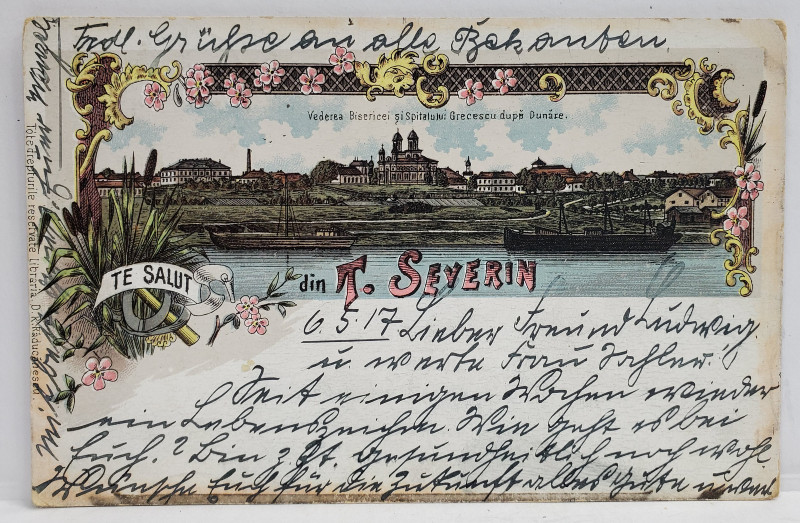 Frdl. Grüße an alle Bekannten
Vederea Bisericei și Spitalului Grecescu după Dunăre.
TE SALUT
din T. SEVERIN
Tote drepturile reservate Libraria D. K. Răducanescu
6.5.17 Lieber Freund Ludwig
u werte Frau Sahler!
Seit einigen Wochen wieder
ein Lebenszeichen. Wie geht es bei
Euch? Bin z. Zt. gesundheitlich noch wohl
Wünsche Euch für die Zukunft alles Gute u